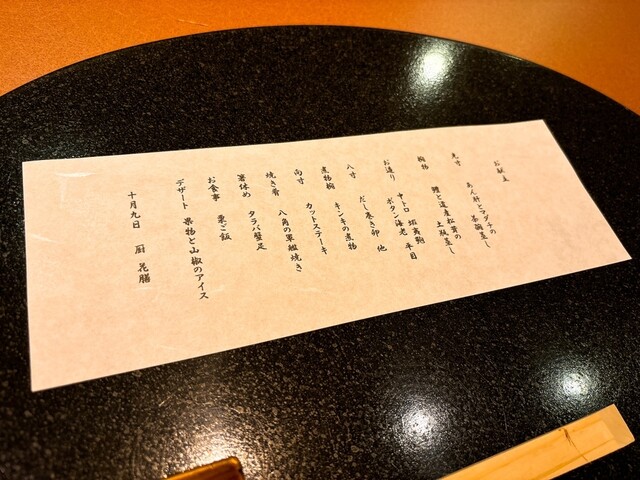 お献立
先寸 あん肝とマダチの
茶碗蒸し
椀物 鱧と道産松茸の
土瓶蒸し
お造り 中トロ 蝦夷鮑
ボタン海老 平目
八寸 だし巻き卵 他
煮物椀 キンキの煮物
向寸 カットステーキ
焼き肴 八角の軍艦焼き
箸休め タラバ蟹足
お食事 栗ご飯
デザート 果物と山椒のアイス
十月九日 厨 花膳